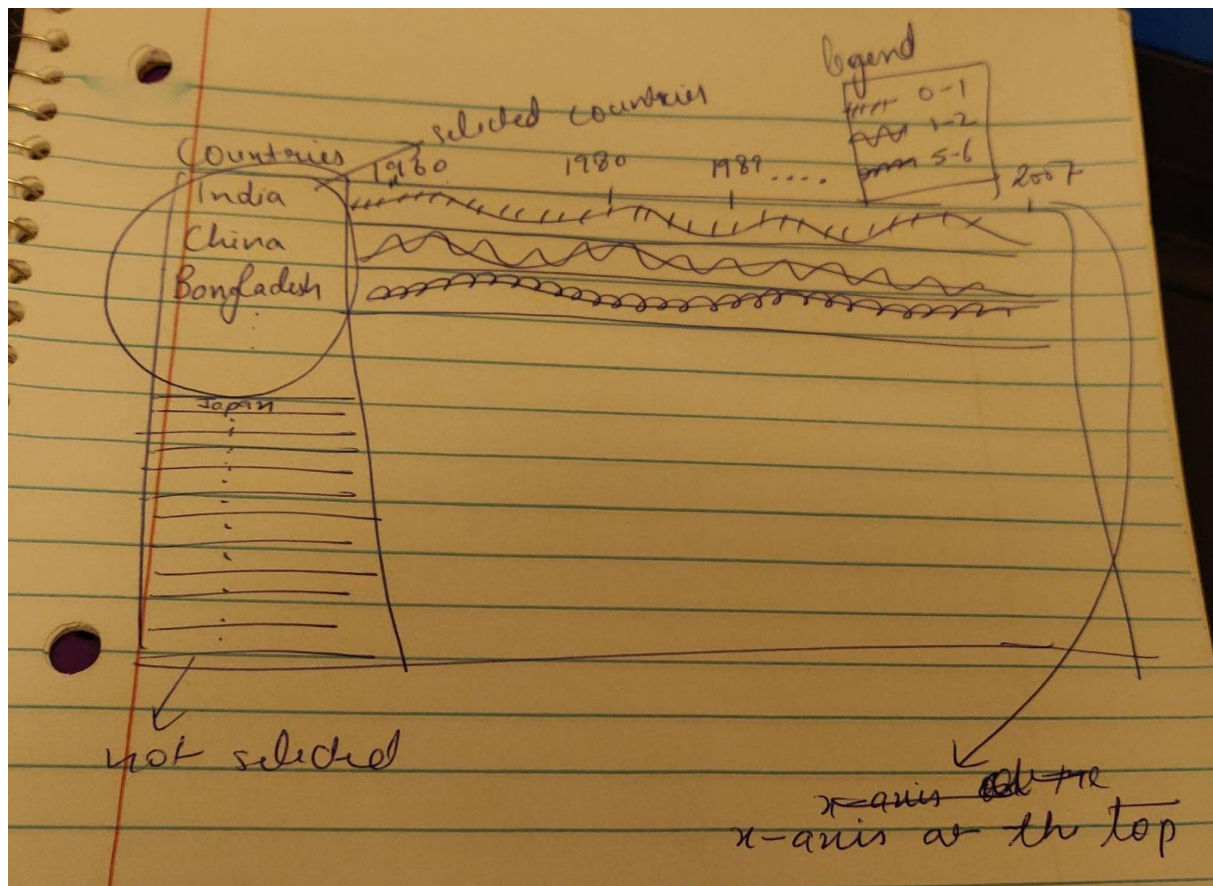 legend
0-1
1-2
5-6
selected countries
Countries
1960 1980 1989.... 2007
India
China
Bangladesh
Japan
not selected
x-axis at the
x-axis at the top